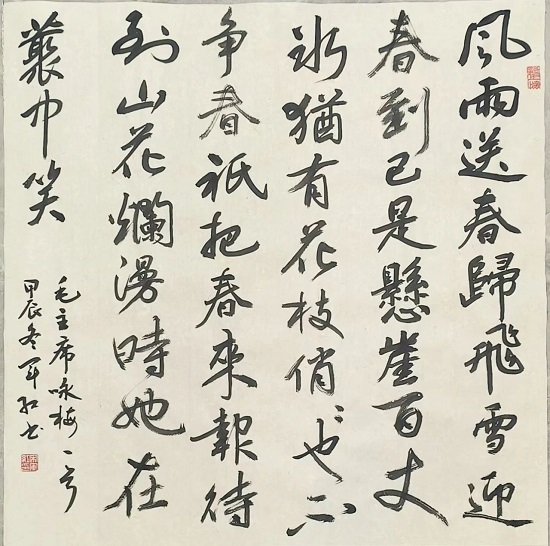 風雨送春歸飛雪迎
春到已是懸崖百丈
冰猶有花枝俏々也不
争春祇把春來報待
到山花爛漫時她在
叢中笑
毛主席咏梅一首
甲辰冬军红书